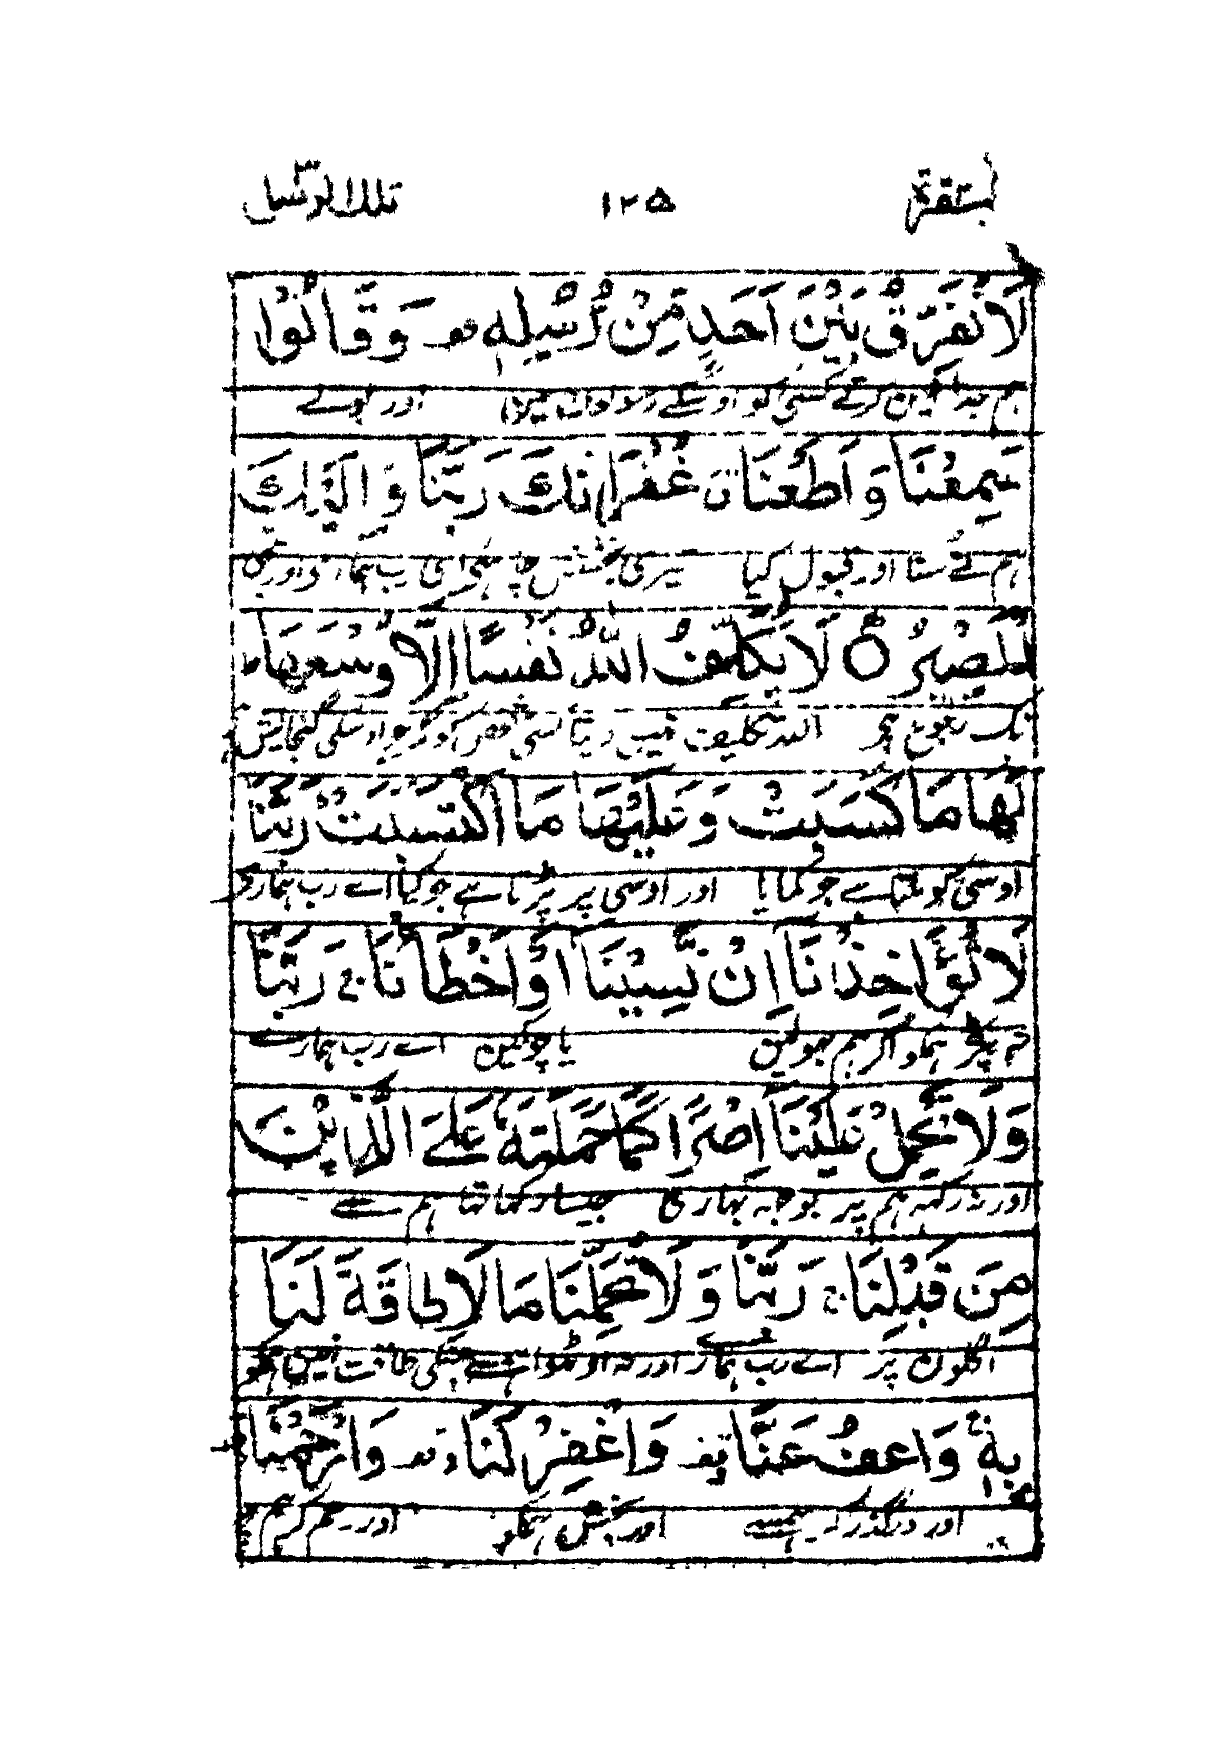 البقرة ١٢٥ تلك الرسل ٣
لَا نُفَرِّقُ بَيْنَ اَحَدٍ مِّنْ رُّسُلِهٖ قف وَقَالُوْا
ہم جدا نہیں کرتے کسی کو اوسکے رسولوں میں اور بولے
سَمِعْنَا وَاَطَعْنَا غُفْرَانَكَ رَبَّنَا وَاِلَيْكَ
ہم نے سنا اور قبول کیا تیری بخشش چاہئے اے رب ہمارے اور تجہی
الْمَصِيْرُ ○ لَا يُكَلِّفُ اللّٰهُ نَفْسًا اِلَّا وُسْعَهَا ط
تک رجوع ہے اللہ تکلیف نہیں دیتا کسی شخص کو مگر جو اوسکی گنجایش ہے
لَهَا مَا كَسَبَتْ وَعَلَيْهَا مَا اكْتَسَبَتْ رَبَّنَا
اوسی کو ملتا ہے جو کمایا اور اوسی پر پڑتا ہے جو کیا اے رب ہمارے
لَا تُؤَاخِذْنَا اِنْ نَّسِيْنَا اَوْ اَخْطَاْنَا ج رَبَّنَا
نہ پکڑ ہمکو اگر ہم بھولیں یا چوکیں اے رب ہمارے
وَلَا تَحْمِلْ عَلَيْنَا اِصْرًا كَمَا حَمَلْتَهٗ عَلَى الَّذِيْنَ
اور نہ رکھ ہم پر بوجھ بھاری جیسا رکھا تھا ہم سے
مِنْ قَبْلِنَا ج رَبَّنَا وَلَا تُحَمِّلْنَا مَا لَا طَاقَةَ لَنَا
اگلوں پر اے رب ہمارے اور نہ اوٹھوا ہم سے جسکی طاقت نہیں ہمکو
بِهٖ ج وَاعْفُ عَنَّا قف وَاغْفِرْ لَنَا قف وَارْحَمْنَا قف
اور درگذر کر ہمسے اور بخش ہمکو اور رحم کر ہم